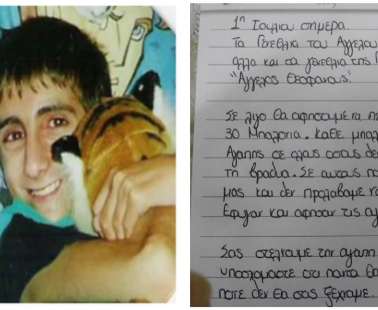 1η Ιουλίου σήμερα.
Τα Γενέθλια του Αγγέλου
αλλά και τα γενέθλια της
"Άγγελος Θεοφάνους"
Σε λίγο θα αφήσουμε τη
30 Μπαλόνια. Κάθε μπαλ
Αγάπης σε όλους όσους δε
τη βραδιά. Σε αυτούς π
μας και δεν προλάβαμε ν
έφυγαν και άφησαν τις αγ
Σας στέλνουμε την αγάπη
υποσχόμαστε ότι πάντα θ
ποτέ δεν θα σας ξεχάσουμε.